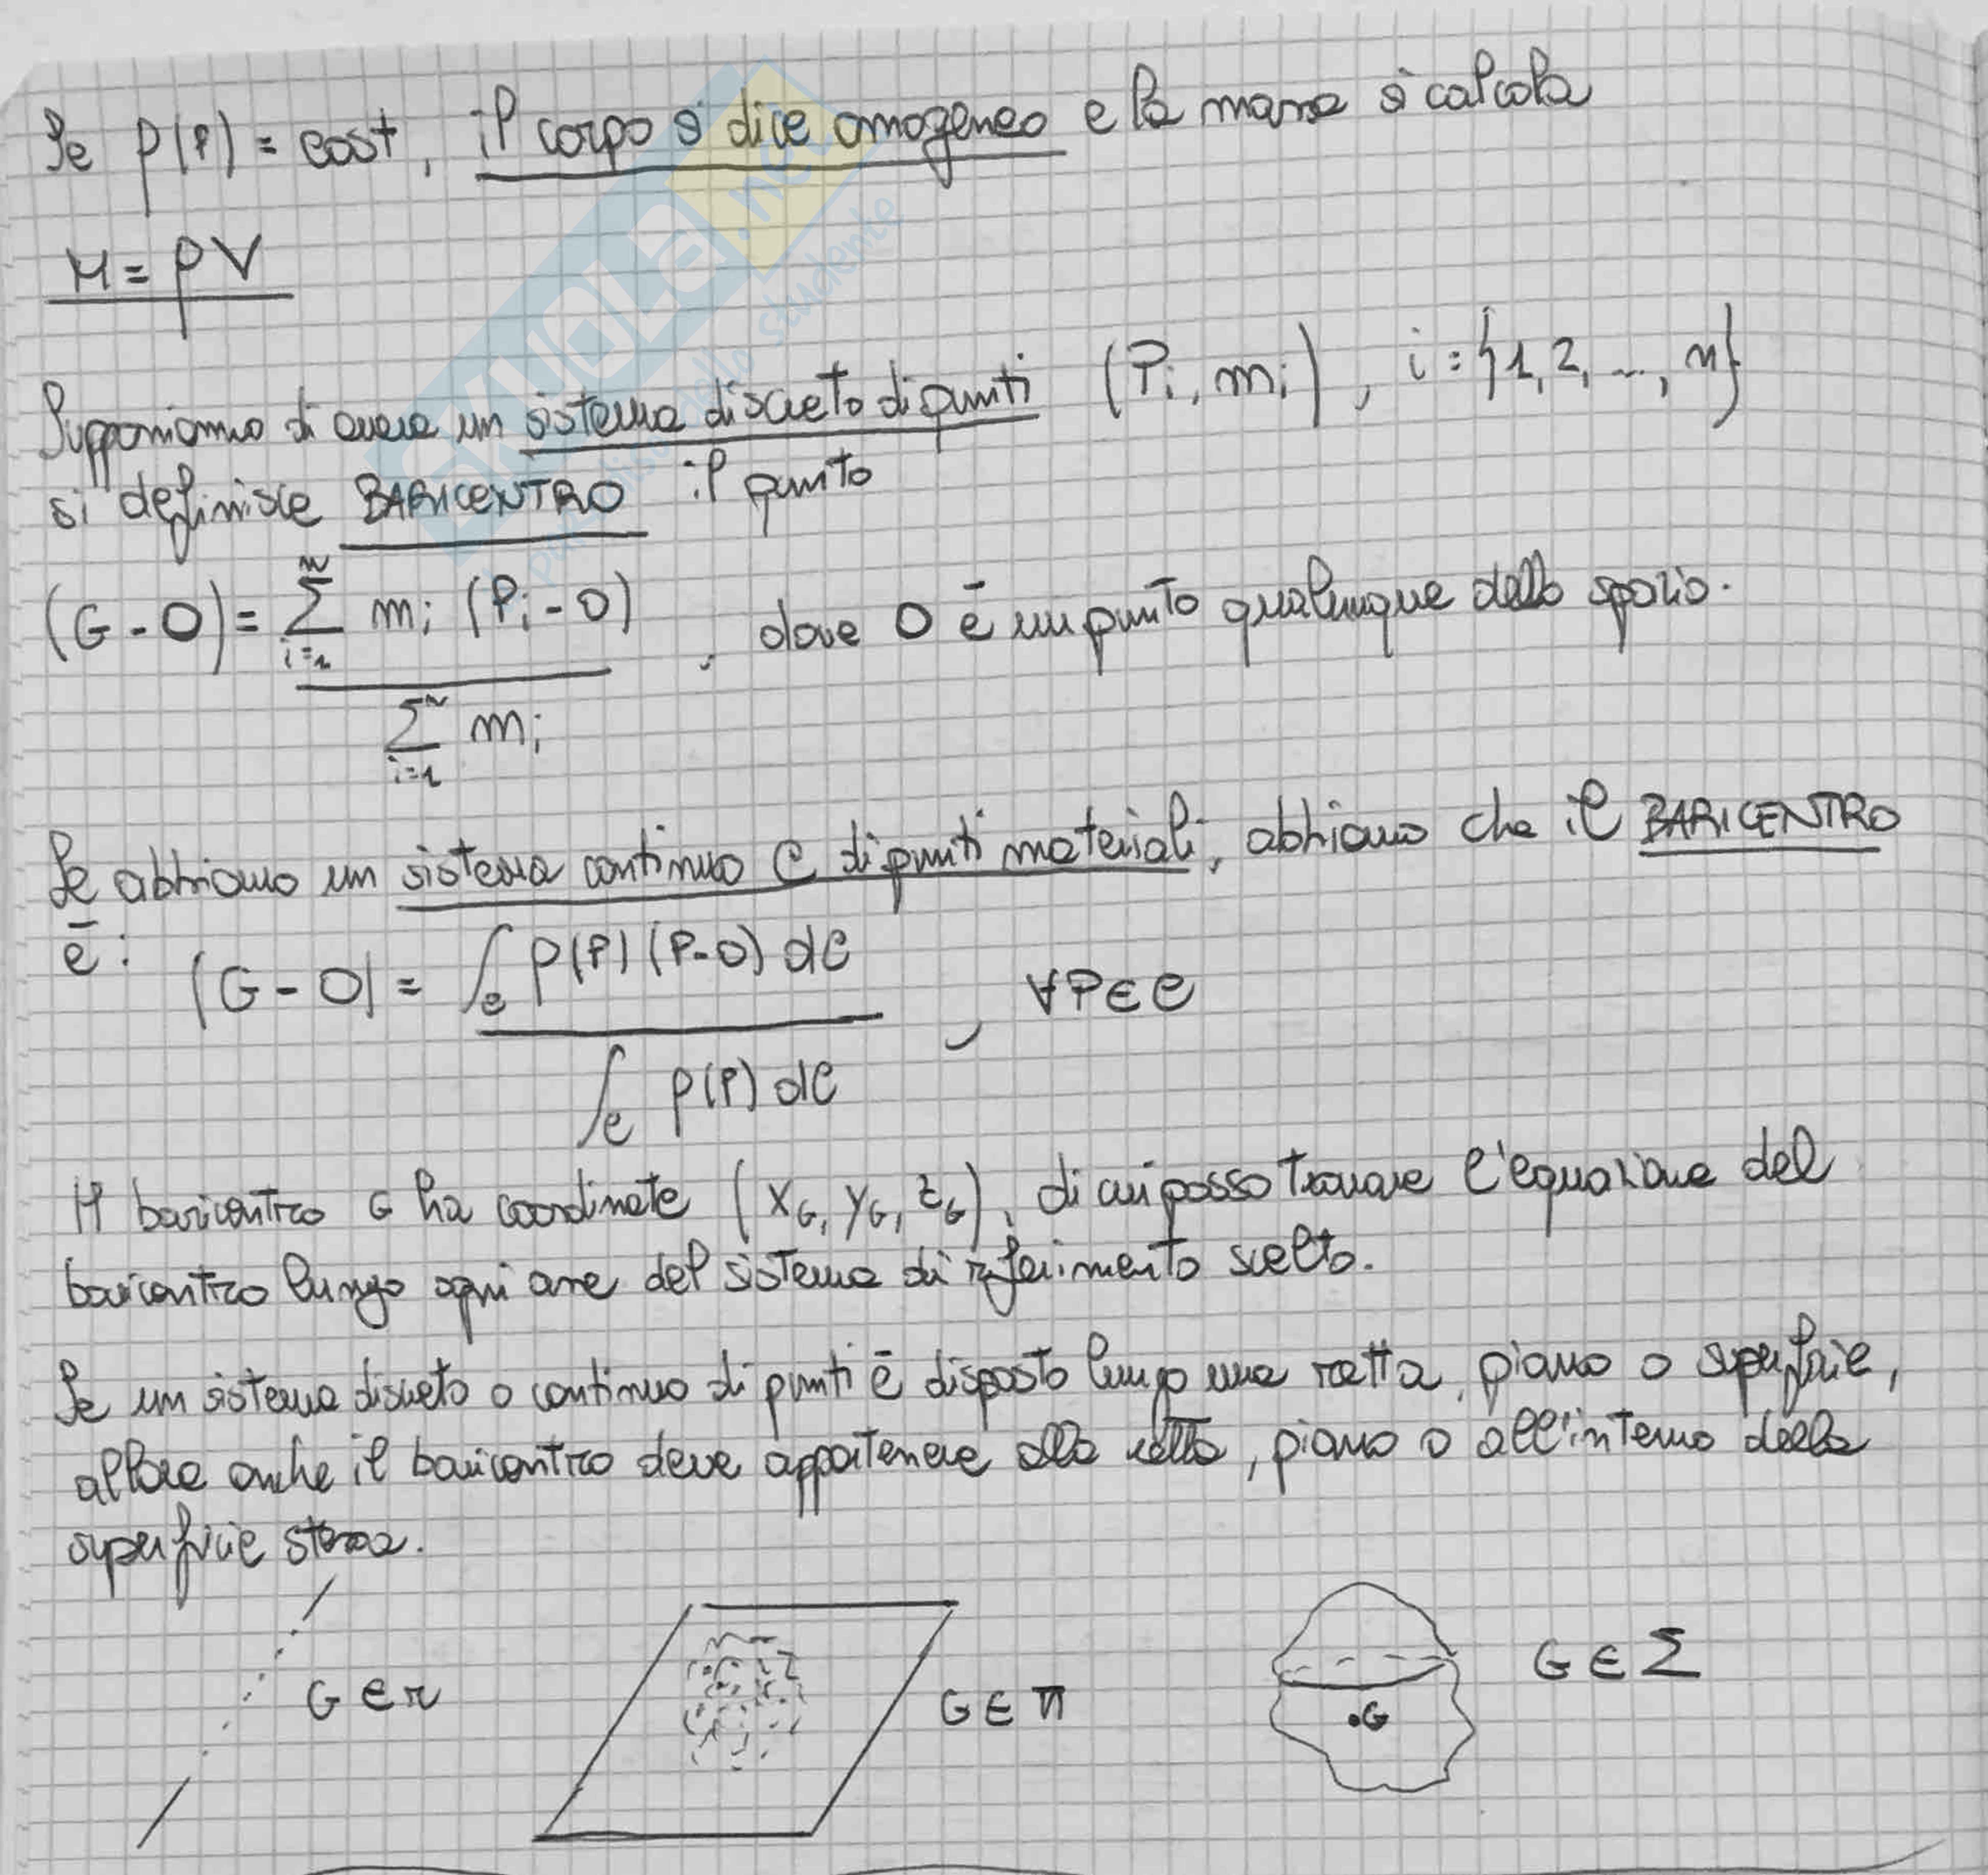 Se ρ(P) = cost, il corpo si dice omogeneo e la massa si calcola
M = ρV
Supponiamo di avere un sistema discreto di punti (Pi, mi), i = {1, 2, ..., n}
si definisce BARICENTRO il punto
(G - O) = ∑_{i=1}^{n} mi (Pi - O) / ∑_{i=1}^{n} mi , dove O è un punto qualunque dello spazio.
Se abbiamo un sistema continuo C di punti materiali, abbiamo che il BARICENTRO
è: (G - O) = ∫_C ρ(P) (P - O) dC / ∫_C ρ(P) dC , ∀P ∈ C
Il baricentro G ha coordinate (xG, yG, zG), di cui posso trovare l'equazione del
baricentro lungo ogni asse del sistema di riferimento scelto.
Se un sistema discreto o continuo di punti è disposto lungo una retta, piano o superficie,
allora anche il baricentro deve appartenere alla retta, piano o all'interno della
superficie stessa.
G ∈ r
G ∈ π
.G
G ∈ Σ
SKUOLA.net